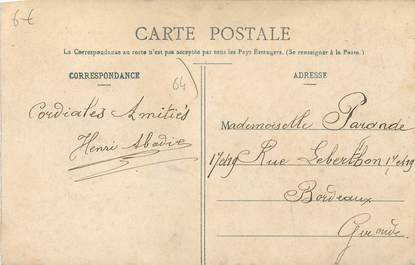 6€
CARTE POSTALE
La Correspondance au recto n'est pas acceptée par tous les Pays Étrangers. (Se renseigner à la Poste.)
CORRESPONDANCE
64
Cordiales Amitiés
Henri Abadie
ADRESSE
Mademoiselle Parandé
17 et 19 Rue Leberthon 17 et 19
Bordeaux
Gironde